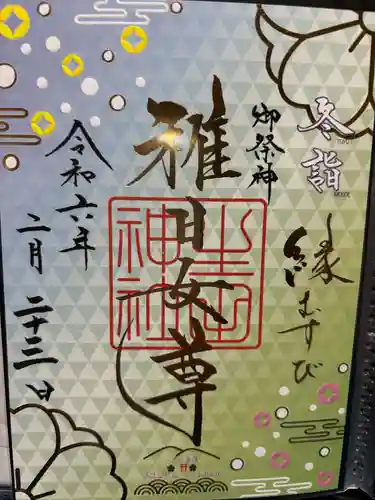 冬詣
縁むすび
御祭神
稚日女尊
令和六年
二月二十三日